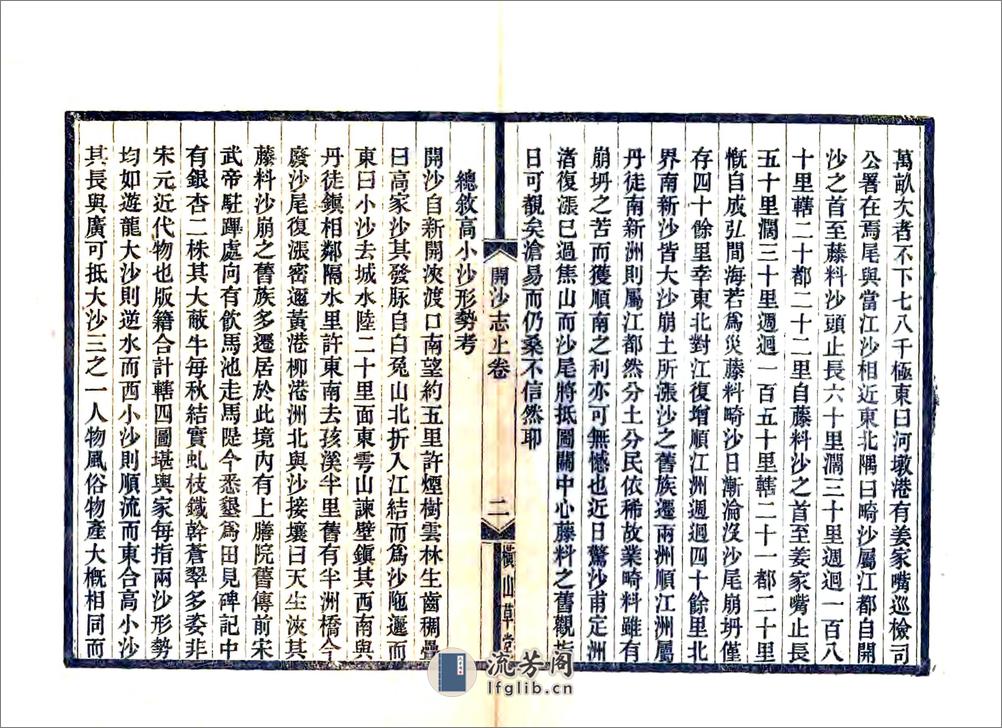 萬畝次者不下七八千極東曰河墩港有姜家嘴巡檢司
公署在焉尾與當江沙相近東北隅曰畸沙屬江都自開
沙之首至藤料沙頭止長六十里濶三十里週迴一百八
十里轄二十都二十二里自藤料沙之首至姜家嘴止長
五十里濶三十里週迴一百五十里轄二十一都二十里
慨自成弘間海若為災藤料畸沙日漸淪沒沙尾崩坍僅
存四十餘里幸東北對江復增順江洲週迴四十餘里北
界南新沙皆大沙崩土所漲沙之舊族遷兩洲順江洲屬
丹徒南新洲則屬江都然分土分民依稀故業畸料雖有
崩坍之苦而獲順南之利亦可無憾也近日驚沙甫定洲
渚復漲已過焦山而沙尾將抵圌關中心藤料之舊觀指
日可覩矣滄易而仍桑不信然耶
開沙志上卷
二
橫山草堂
總敘高小沙形勢考
開沙自新開浹渡口南望約五里許煙樹雲林生齒稠疊
曰高家沙其發脉自白兔山北折入江結而為沙陁邐而
東曰小沙去城水陸二十里面東雩山諫壁鎮其西南與
丹徒鎮相鄰隔水里許東南去孩溪半里舊有半洲橋今
廢沙尾復漲密邇黃港柳港洲北與沙接壤曰天生浹其
藤料沙崩之舊族多遷居於此境內有上膳院舊傳前宋
武帝駐蹕處向有飲馬池走馬隄今悉墾為田見碑記中
有銀杏二株其大蔽牛每秋結實虬枝鐵幹蒼翠多姿非
宋元近代物也版籍合計轄四圖堪輿家每指兩沙形勢
均如遊龍大沙則逆水而西小沙則順流而東合高小沙
其長與廣可抵大沙三之一人物風俗物產大概相同而
流芳阁
lfglib.cn